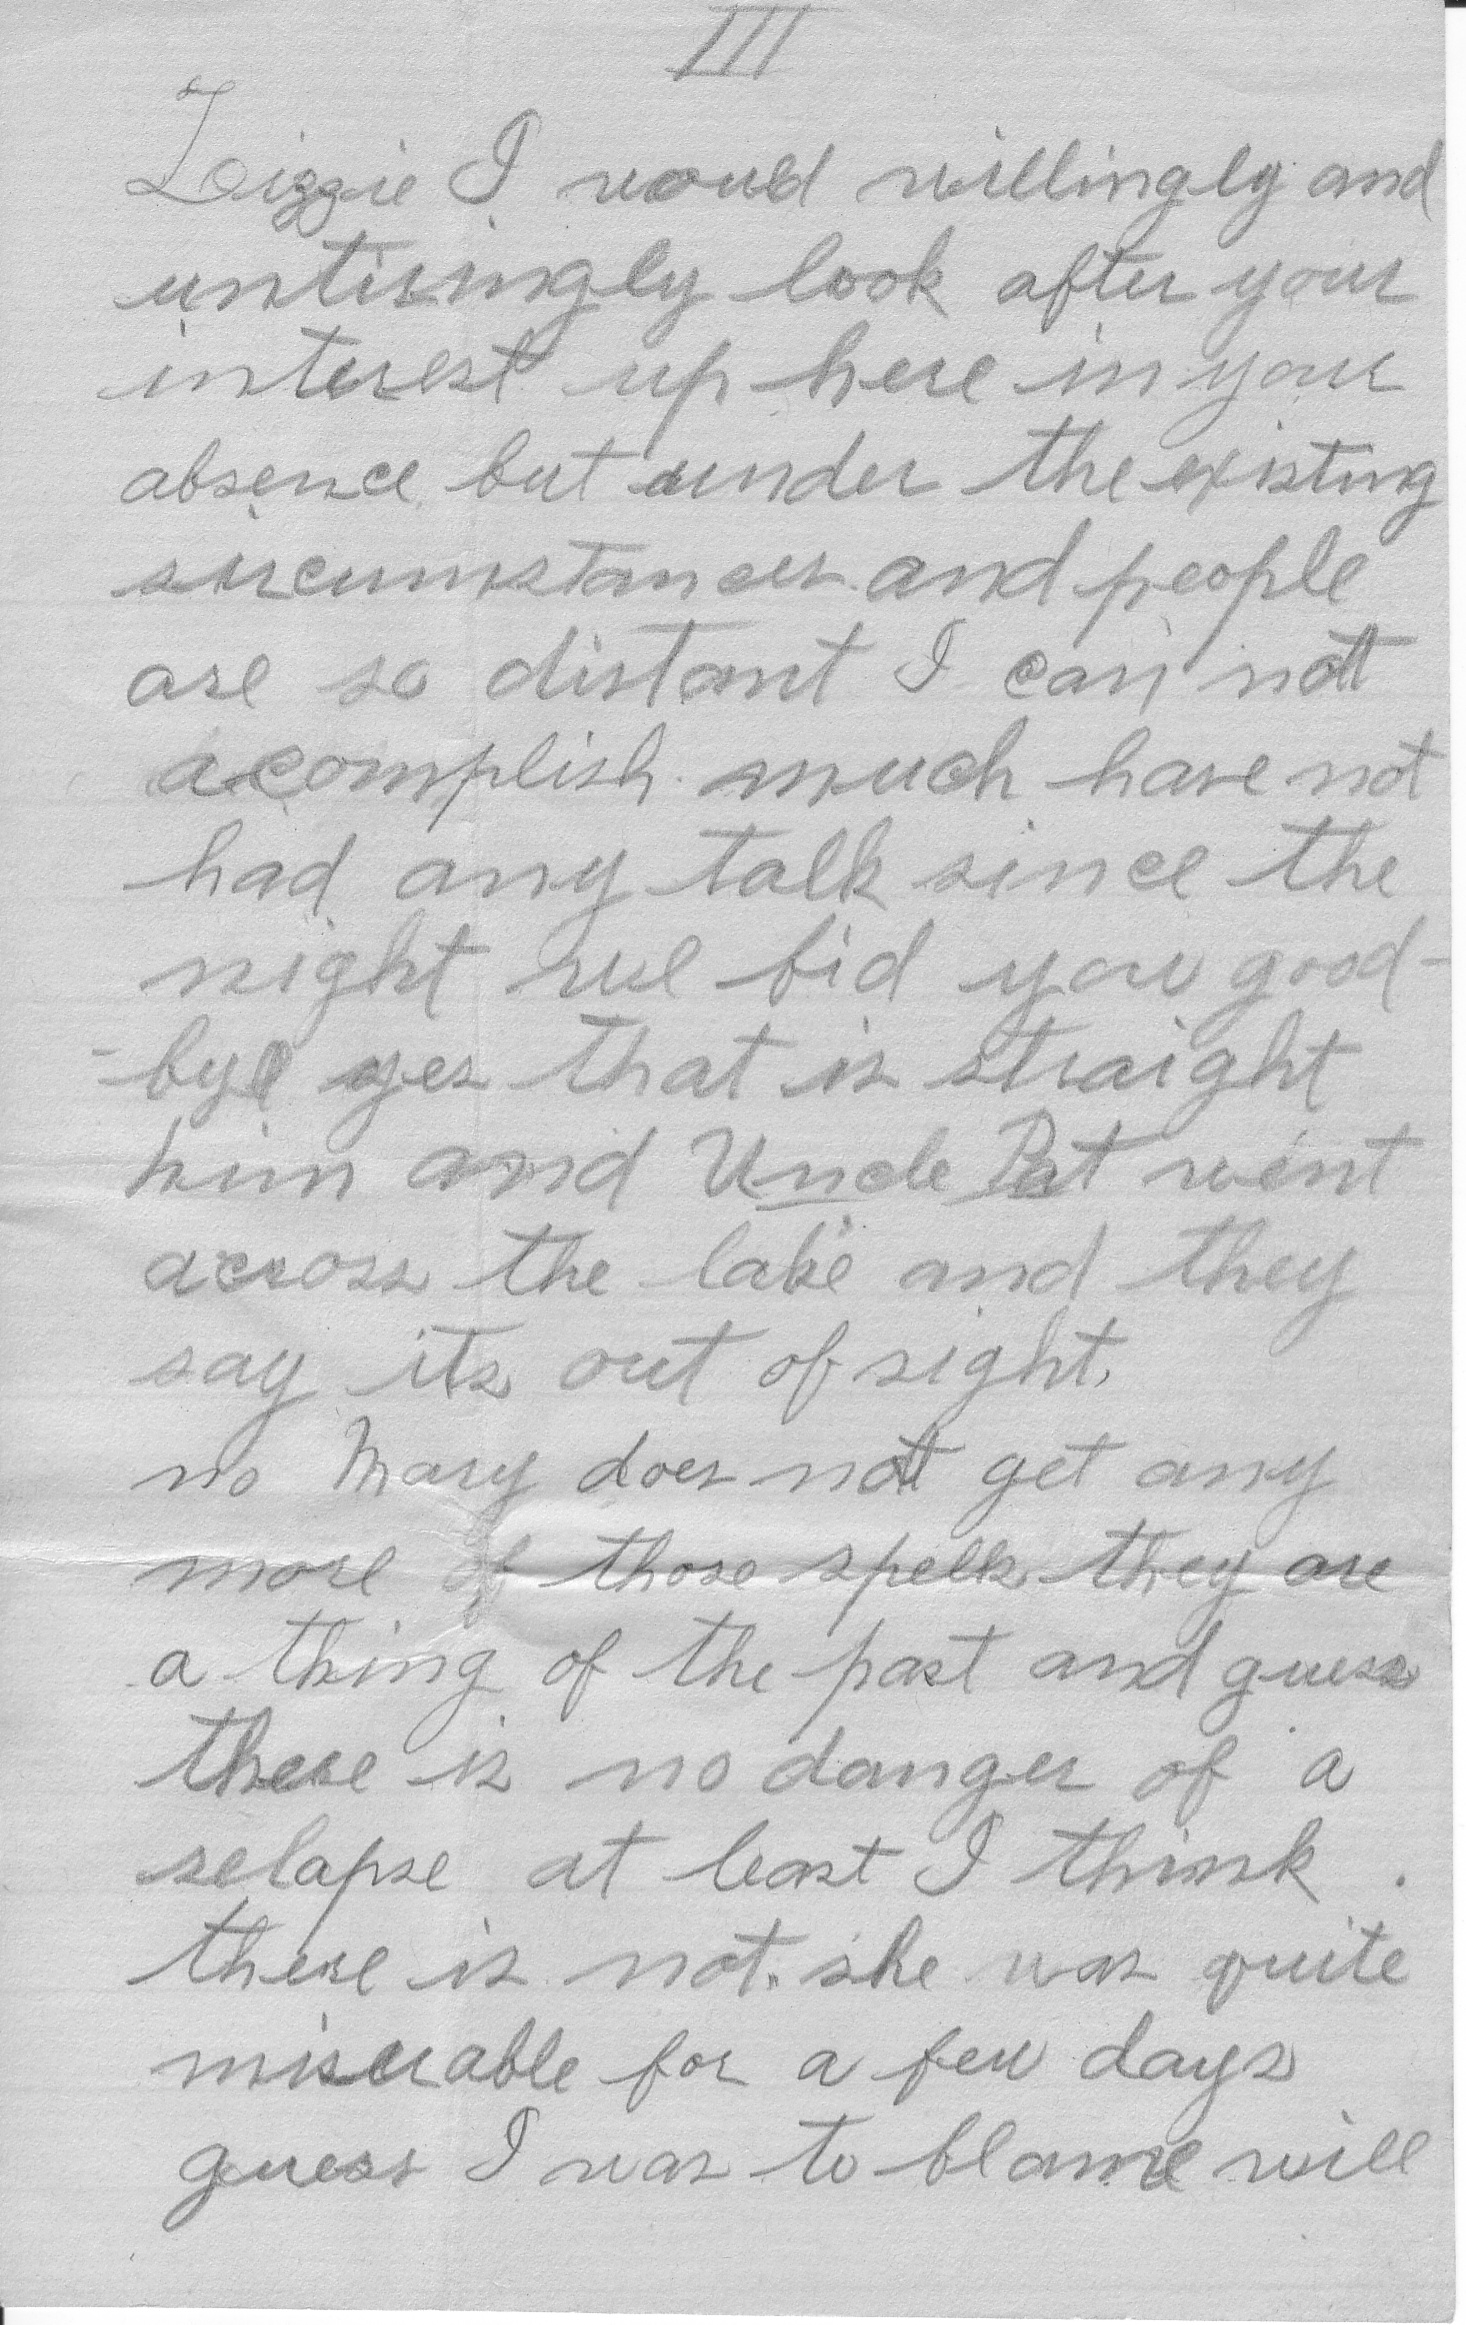 III
Lizzie I would willingly and
untiringly look after your
interest up here in your
absence but under the existing
sircumstances and people
are so distant I can not
acomplish much have not
had any talk since the
night we bid you good-
-bye yes that is straight
him and Uncle Pat went
across the lake and they
say its out of sight.
no Mary does not get any
more of those spells they are
a thing of the past and guess
there is no danger of a
relapse at least I think.
there is not. she was quite
miserable for a few days
guess I was to blame will